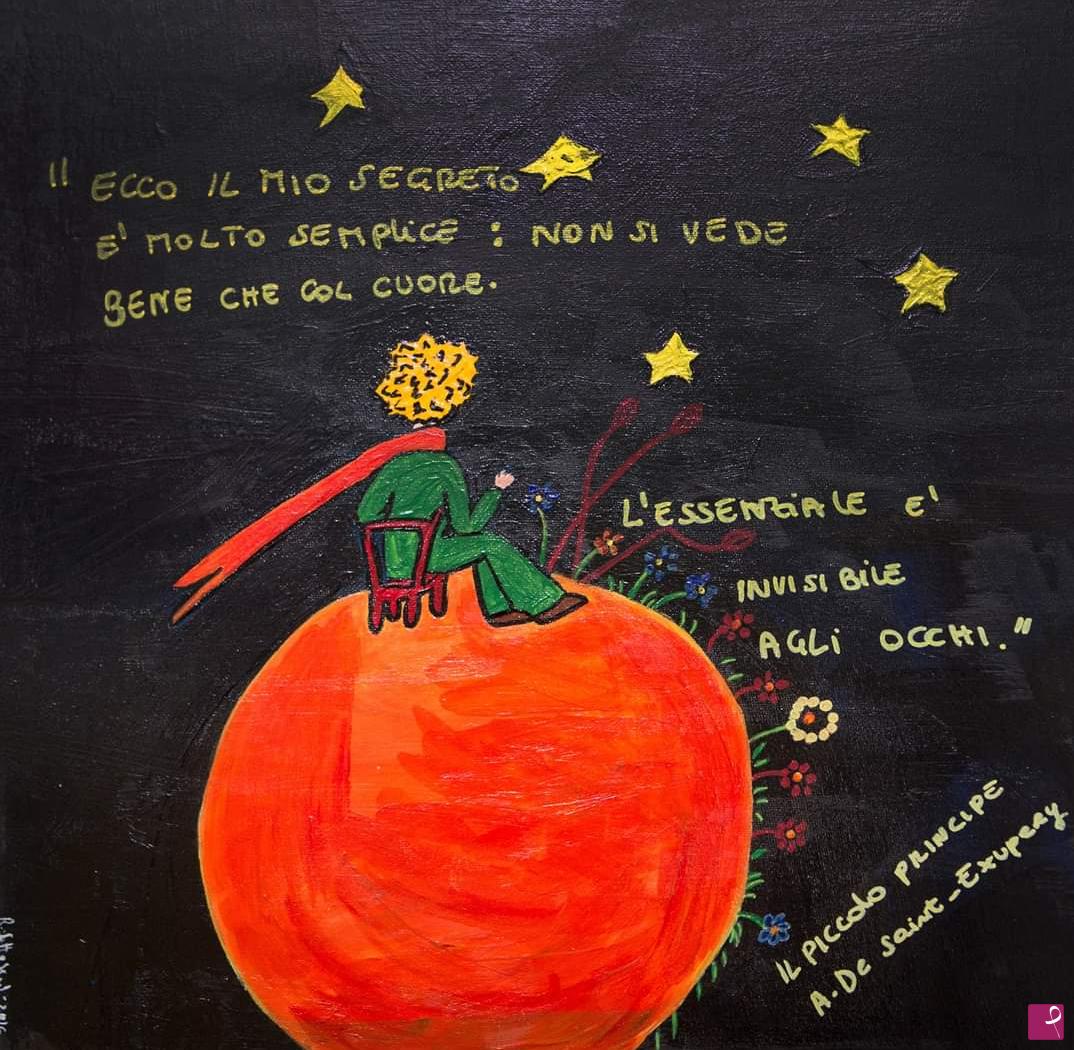 " ECCO IL MIO SEGRETO
E' MOLTO SEMPLICE : NON SI VEDE
BENE CHE COL CUORE.
L'ESSENZIALE E'
INVISIBILE
AGLI OCCHI."
IL PICCOLO PRINCIPE
A. De Saint-Exupery